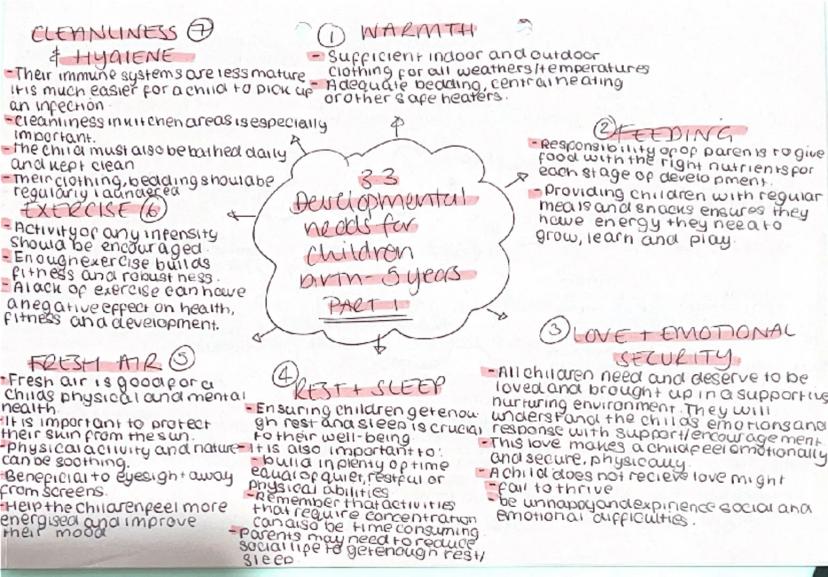 3.3
Developmental
needs for
children
birth - 5 years
PART 1
① WARMTH
- Sufficient indoor and outdoor
clothing for all weathers/temperatures
- Adequate bedding, central heating
or other safe heaters.
② FEEDING
- Responsibility of parents to give
food with the right nutrients for
each stage of development.
- Providing children with regular
meals and snacks ensures they
have energy they need to
grow, learn and play.
③ LOVE + EMOTIONAL
SECURITY
- All children need and deserve to be
loved and brought up in a supportive
nurturing environment. They will
understand the childs emotions and
response with support/encouragement
- This love makes a child feel emotionally
and secure, physically.
- A child does not recieve love might
- fail to thrive
be unhappy and expirience social and
emotional difficulties.
④ REST + SLEEP
- Ensuring children get enou-
gh rest and sleep is crucial
to their well-being
- It is also important to:
- build in plenty of time
equal of quiet, restful or
physical abilities
- Remember that activities
that require concentration
can also be time consuming
- Parents may need to reduce
social life to get enough rest/
sleep
FRESH AIR ⑤
- Fresh air is good for a
childs physical and mental
health.
- It is important to protect
their skin from the sun.
- Physical activity and nature
can be soothing.
- Beneficial to eyesight away
from screens.
- Help the children feel more
energised and improve
their mood
EXERCISE ⑥
- Activity of any intensity
should be encouraged.
- Enough exercise builds
fitness and robustness.
- A lack of exercise can have
a negative effect on health,
fitness and development.
CLEANLINESS ⑦
& HYGIENE
- Their immune systems are less mature
it is much easier for a child to pick up
an infection
- Cleanliness in kitchen areas is especially
important.
- The child must also be bathed daily
and kept clean
- Their clothing, bedding should be
regularly laundered